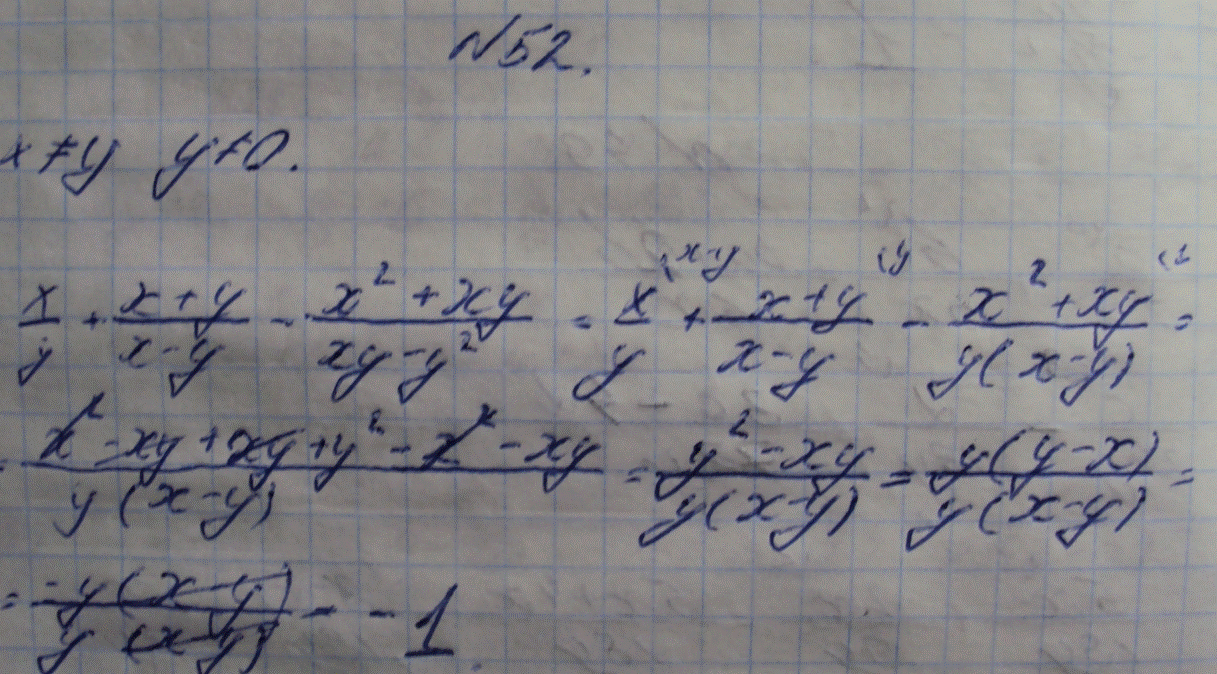 №52.
x≠y y≠0.
x/y + (x+y)/(x-y) - (x²+xy)/(xy-y²) = x/y (x-y + (x+y)/(x-y) (y - (x²+xy)/(y(x-y)) (1 =
(x²-xy+xy+y²-x²-xy)/(y(x-y)) = (y²-xy)/(y(x-y)) = (y(y-x))/(y(x-y)) =
= (-y(x-y))/(y(x-y)) = -1